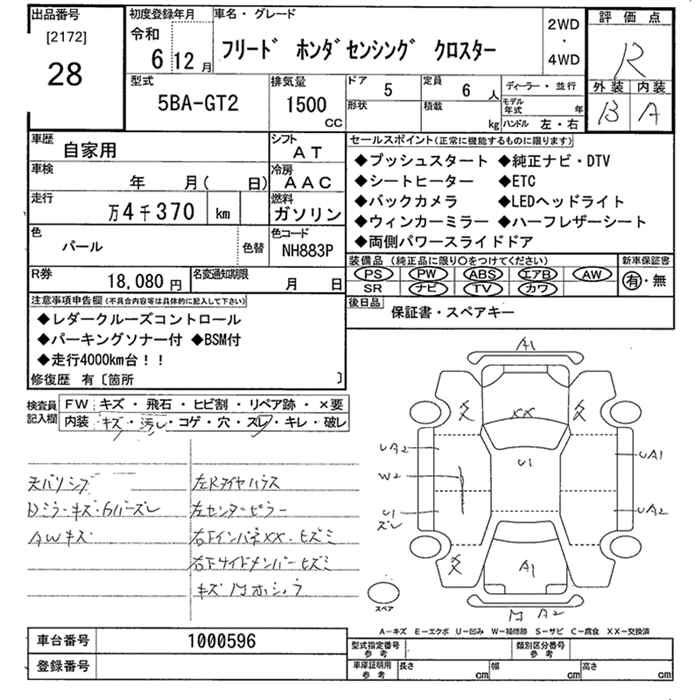 出品番号
[2172]
28
初度登録年月
令和
6 12 月
車名・グレード
フリード ホンダセンシング クロスター
2WD
・
4WD
評価点
R
外装 内装
B A
型式
5BA-GT2
排気量
1500
cc
ドア
5
定員
6 人
形状
積載
kg
ディーラー・並行
モデル年式 年
ハンドル 左・右
車歴
自家用
シフト
AT
車検
年 月( 日)
冷房
AAC
走行
万4千370 km
燃料
ガソリン
色
パール
色替
色コード
NH883P
R券
18,080 円
名変通知期限
月 日
セールスポイント(正常に機能するものに限ります)
◆プッシュスタート ◆純正ナビ・DTV
◆シートヒーター ◆ETC
◆バックカメラ ◆LEDヘッドライト
◆ウィンカーミラー ◆ハーフレザーシート
◆両側パワースライドドア
装備品 (純正品に限り〇をつけてください)
PS PW ABS エアB AW
SR ナビ TV カワ
新車保証書
有・無
後日品
保証書・スペアキー
注意事項申告欄(不具合内容等は具体的に記入して下さい)
◆レダークルーズコントロール
◆パーキングソナー付 ◆BSM付
◆走行4000km台!!
修復歴 有〔箇所 〕
検査員記入欄
FW キズ・飛石・ヒビ割・リペア跡・×要
内装 キズ・汚レ・コゲ・穴・スレ・キレ・破レ
AWキズ
左Rタイヤハウス
左センターピラー
右下インパネXX・ヒズミ
右下サイドメンバーヒズミ
A1
XX
U1
UA2
W2
U1
スレ
UA1
UA2
A1
A2
スペア
A-キズ E-エクボ U-凹み W-補修跡 S-サビ C-腐食 XX-交換済
車台番号
1000596
登録番号
型式指定番号
参考
類別区分番号
参考
車庫証明用
参考
長さ cm
幅 cm
高さ cm